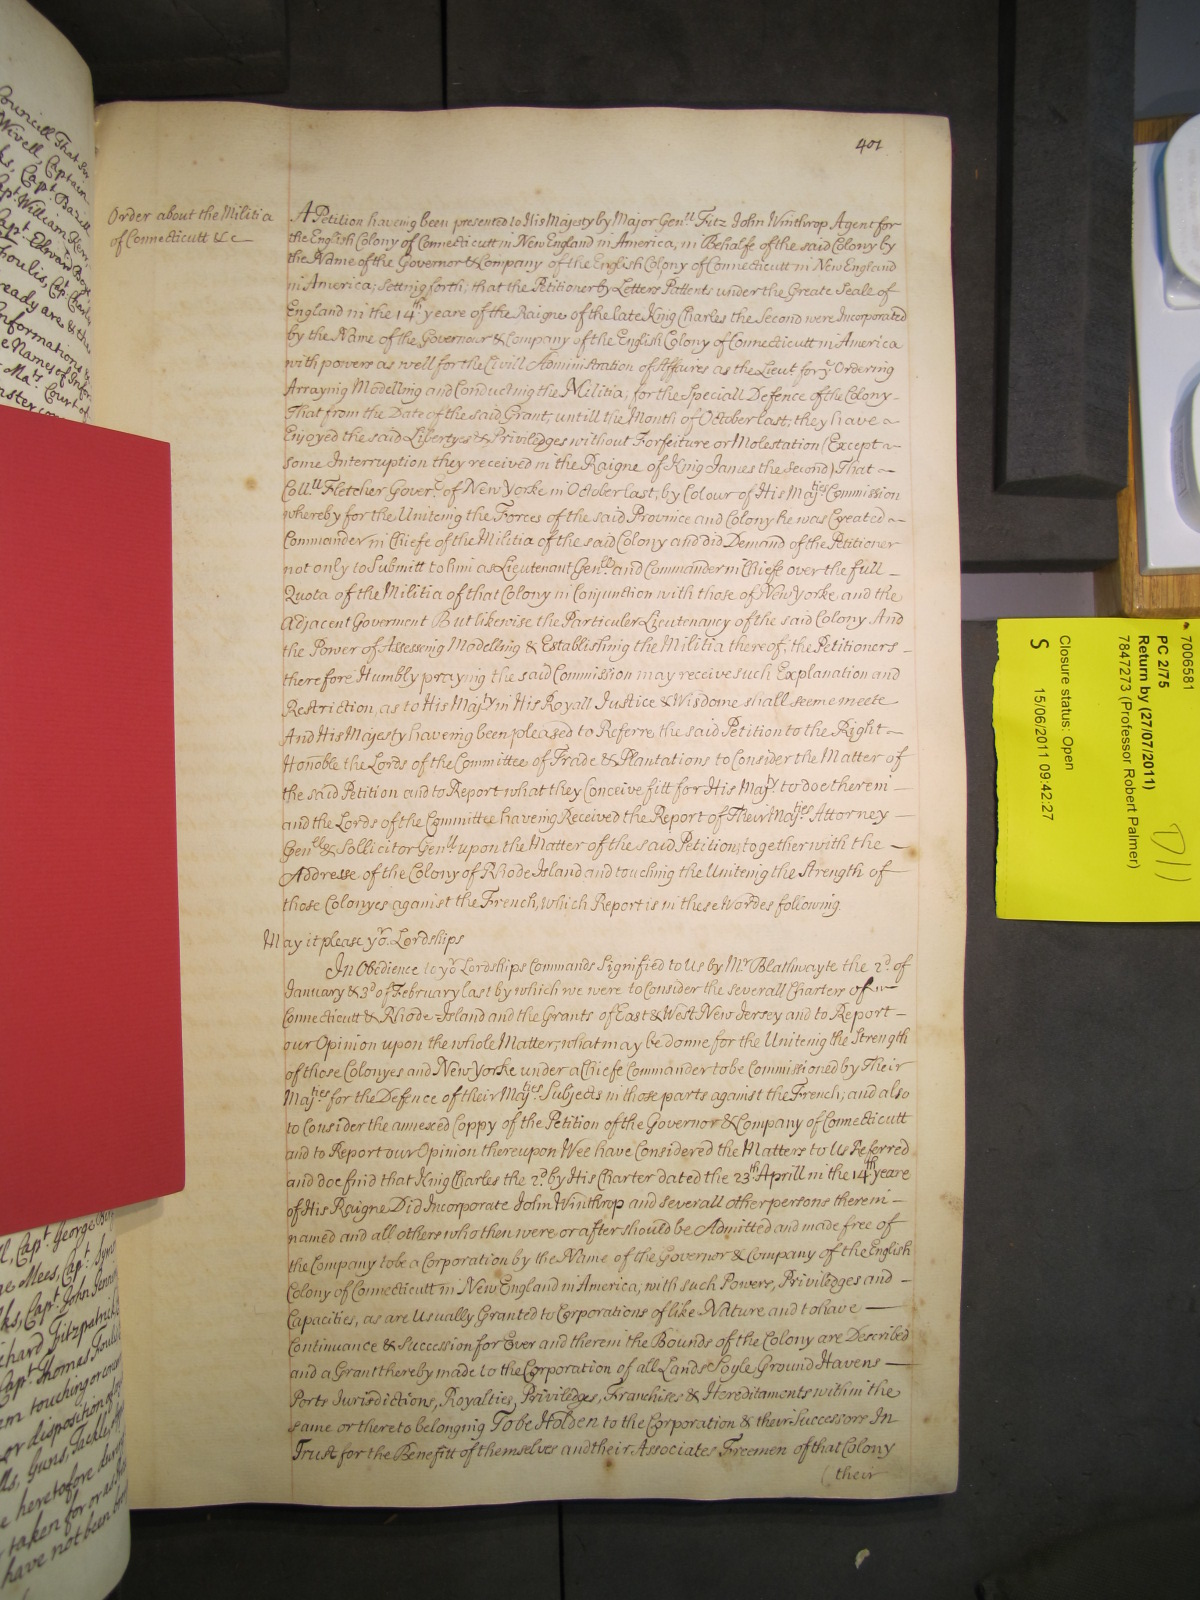 401
Order about the Militia
of Connecticutt &c
A Petition haveing been presented to His Majesty by Major Genll Fitz John Winthrop Agent for
the English Colony of Connecticutt in New England in America, in Behalfe of the said Colony by
the Name of the Governor & Company of the English Colony of Connecticutt in New England
in America; setting forth; that the Petitioner by Letters Pattents under the Greate Seale of
England in the 14th yeare of the Raigne of the late King Charles the Second were Incorporated
by the Name of the Governour & Company of the English Colony of Connecticutt in America
with powers as well for the Civill Administration of Affaires as the Lieut for ye Ordering
Arraying Modelling and Conducting the Militia, for the Speciall Defence of the Colony
That from the Date of the said Grant, untill the Month of October last, they have
Enjoyed the said Libertyes & Priviledges without Forfeiture or Molestation (Except
some Interruption they received in the Raigne of King James the Second) That
Coll.ll Fletcher Governr of New Yorke in October last, by Colour of His Majties Commission
whereby for the Uniteing the Forces of the said Province and Colony he was Created
Commander in Chiefe of the Militia of the said Colony and did Demand of the Petitioner
not only to Submitt to him as Lieutenant Genll and Commander in Chiefe over the full
Quota of the Militia of that Colony in Conjunction with those of New Yorke and the
Adjacent Goverment But likewise the Particuler Lieutenancy of the said Colony And
the Power of Assessing Modelling & Establishing the Militia thereof; the Petitioners
therefore Humbly praying the said Commission may receive such Explanation and
Restriction, as to His Majty in His Royall Justice & Wisdome shall seeme meete
And His Majesty haveing been pleased to Referre the said Petition to the Right
Honoble the Lords of the Committee of Trade & Plantations to Consider the Matter of
the said Petition and to Report what they Conceive fitt for His Majty to doe therein
and the Lords of the Committee haveing Received the Report of Their Majties Attorney
Genll & Sollicitor Genll upon the Matter of the said Petition, together with the
Addresse of the Colony of Rhode Island and touching the Uniteing the Strength of
those Colonyes against the French, which Report is in these Wordes following
May it please yor Lordships
In Obedience to yor Lordships Commands Signified to Us by Mr Blathwayte the 2d of
January & 3d of February last by which we were to Consider the severall Charters of
Connecticutt & Rhode-Island and the Grants of East & West New Jersey and to Report
our Opinion upon the whole Matter, what may be donne for the Uniteing the Strength
of those Colonyes and New Yorke under a Chiefe Commander to be Commissioned by Their
Majties for the Defence of their Majties Subjects in those parts against the French; and also
to Consider the annexed Coppy of the Petition of the Governor & Company of Connecticutt
and to Report our Opinion thereupon Wee have Considered the Matters to Us Referred
and doe find that King Charles the 2d by His Charter dated the 23th Aprill in the 14th yeare
of His Raigne Did Incorporate John Winthrop and severall other persons therein
named and all others who then were or after should be Admitted and made free of
the Company to be a Corporation by the Name of the Governor & Company of the English
Colony of Connecticutt in New England in America, with such Powers, Priviledges and
Capacities, as are Usually Granted to Corporations of like Nature and to have
Continuance & Succession for Ever and therein the Bounds of the Colony are Described
and a Grant thereby made to the Corporation of all Lands Soyle Ground Havens
Ports Jurisdictions, Royalties, Priviledges, Franchises & Hereditaments within the
same or thereto belonging To be Holden to the Corporation & their Successors In
Trust for the Benefitt of themselves and their Associates Freemen of that Colony
(their
7006581
PC 2/75
Return by (27/07/2011)
7847273 (Professor Robert Palmer)
Closure status: Open
S 15/06/2011 09:42:27
D11